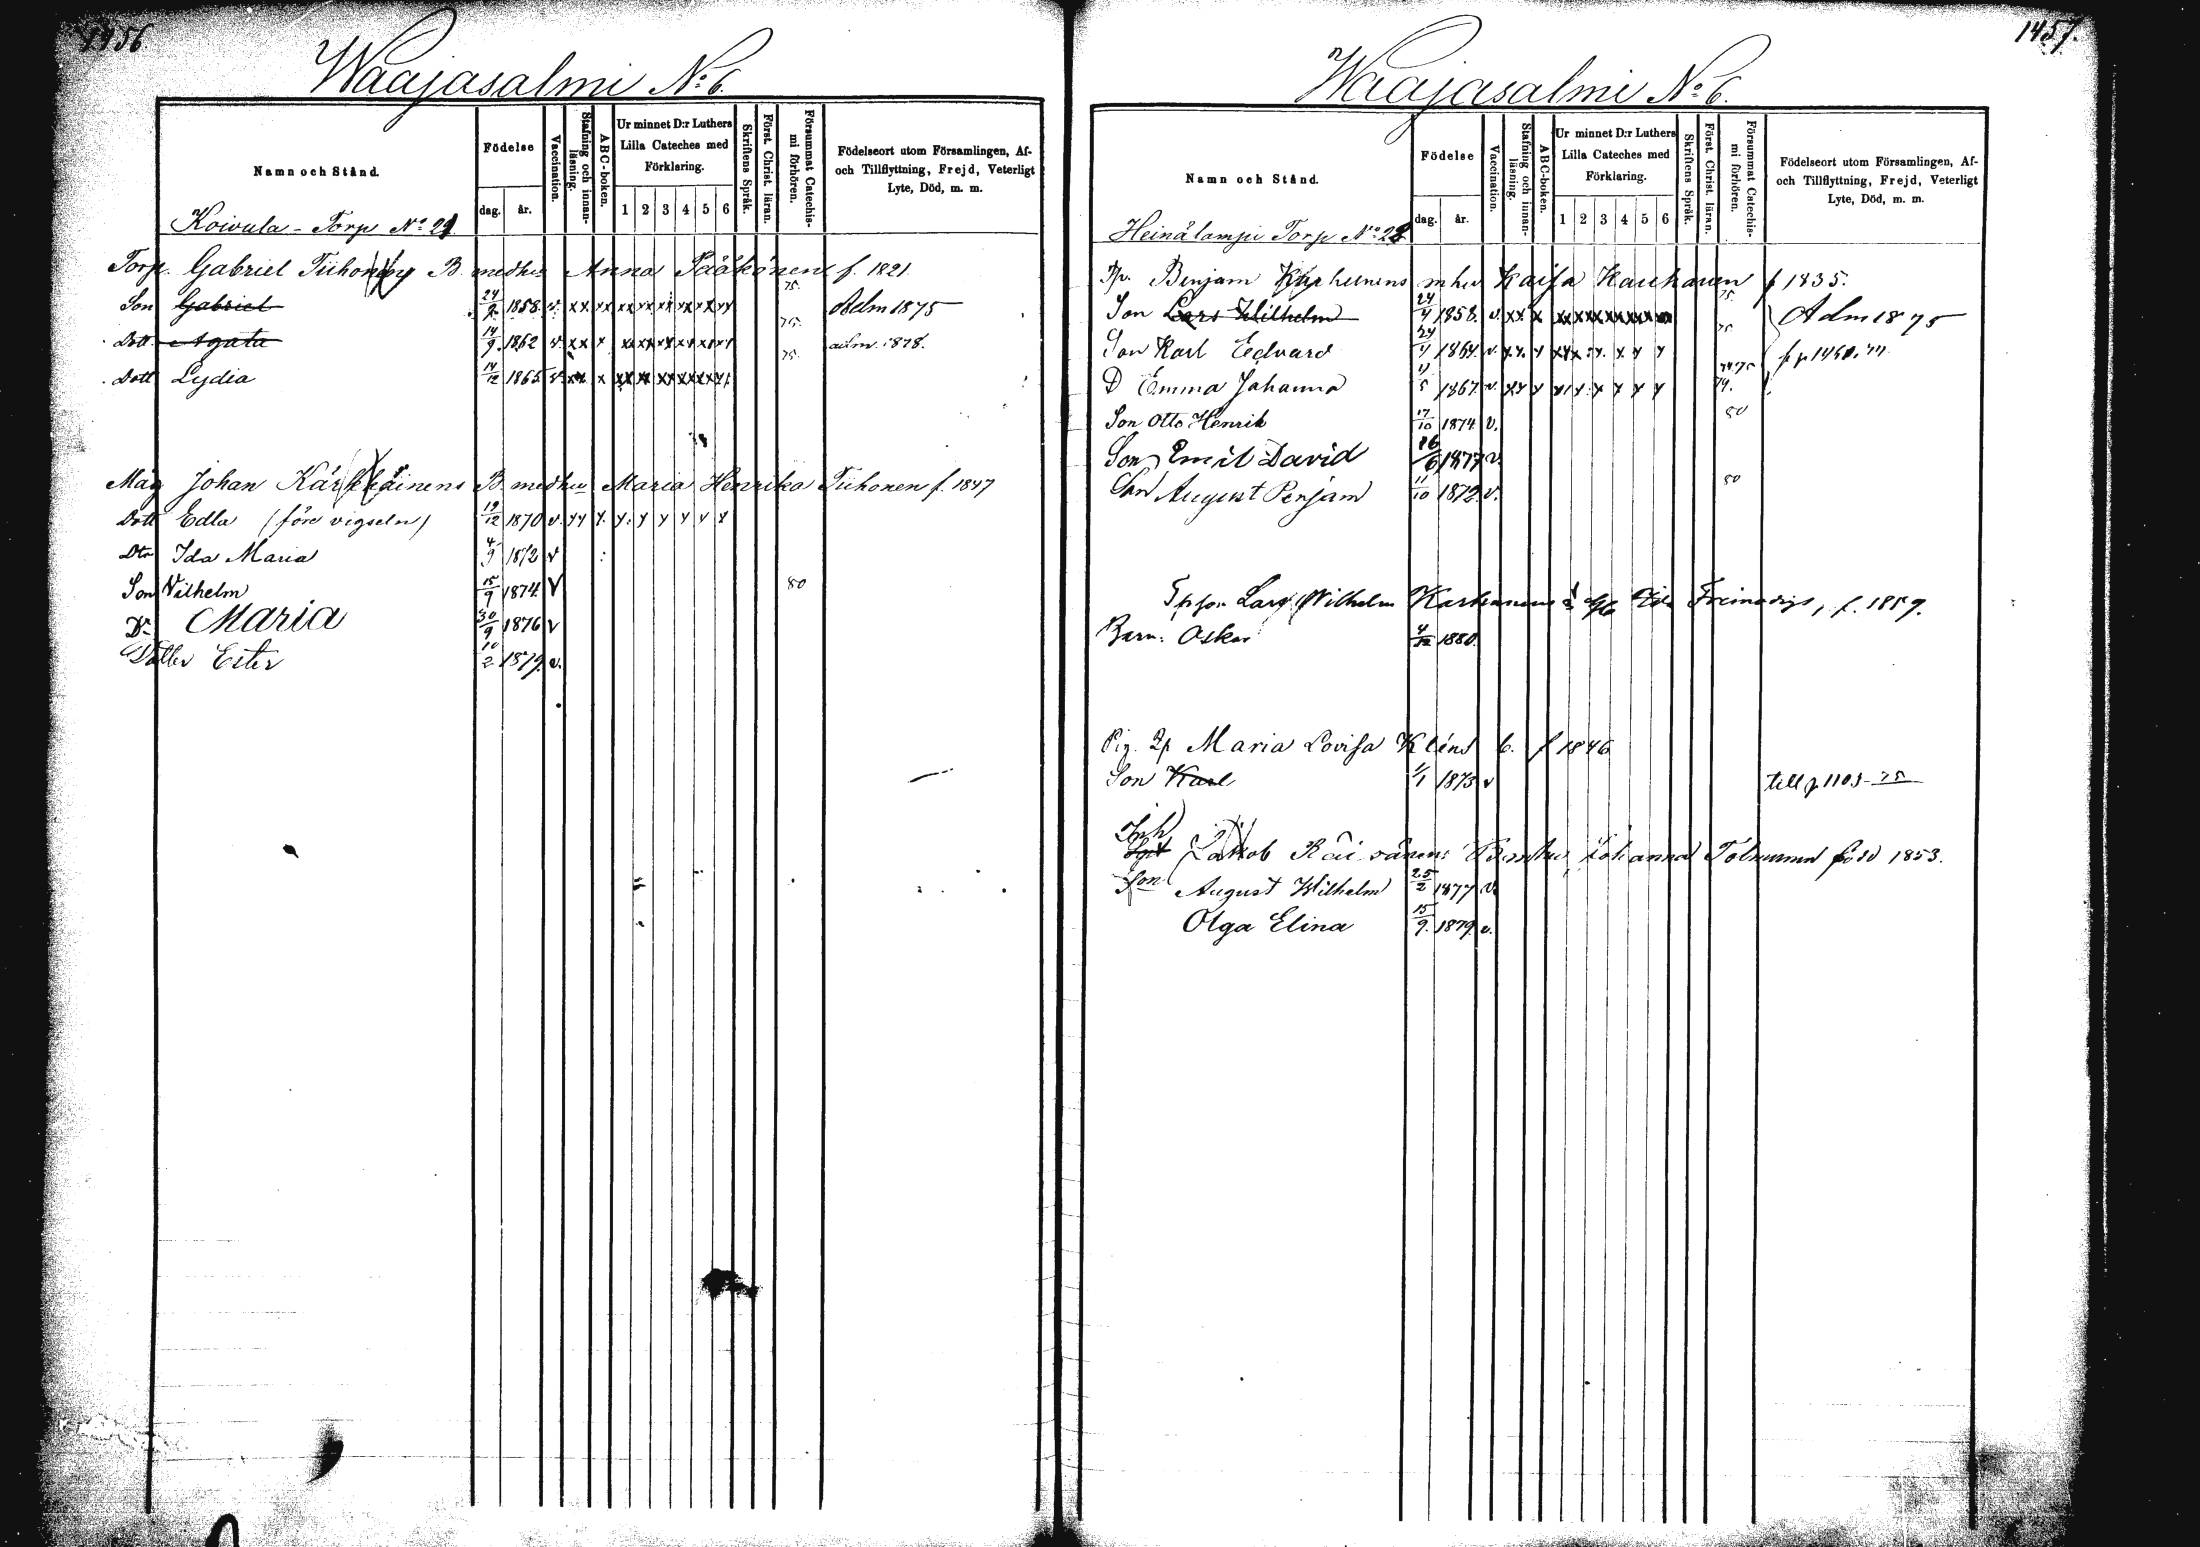 1456
Waajasalmi No 6.
Namn och Stånd.
Födelse
dag.
år.
Vaccination.
Stafning och innan-läsning.
ABC-boken.
Ur minnet D:r Luthers Lilla Cateches med Förklaring.
1 2 3 4 5 6
Skriftens Språk.
Först. Christ. läran.
Försummat Catechis-mi förhören.
Födelseort utom Församlingen, Af-
och Tillflyttning, Frejd, Veterligt
Lyte, Död, m. m.
Koivula - Torp No 21
Torp. Gabriel Tiihonens B. medhu Anna Pääkönen f. 1821.
Son Gabriel 24/2 1858. v. xx xx xx xx xx xx xx xx 75. Adm 1875
Dott Agata 14/9 1862 v. xx x xx xx xx xx xx xx 75. adm. 1878.
Dott Lydia 14/12 1865 v. xx x xx xx xx xx xx xx 75.
Måg Johan Kärkkäinens B. medhu Maria Henrika Tiihonen f. 1847
Dott Edla (före vigseln) 19/12 1870 v.
Dtr Ida Maria 4/9 1872 v
Son Vilhelm 15/9 1874 V 80
Dr Maria 30/9 1876 v
Dotter Ester 10/2 1879. v.
1457.
Waajasalmi No 6.
Namn och Stånd.
Födelse
dag.
år.
Vaccination.
Stafning och innan-läsning.
ABC-boken.
Ur minnet D:r Luthers Lilla Cateches med Förklaring.
1 2 3 4 5 6
Skriftens Språk.
Först. Christ. läran.
Försummat Catechis-mi förhören.
Födelseort utom Församlingen, Af-
och Tillflyttning, Frejd, Veterligt
Lyte, Död, m. m.
Heinälampi Torp No 22
Tp. Benjam Karhunens mhu Kaisa Kauhanen f 1835.
Son Lars Wilhelm 24/4 1858. v. xx x xx xx xx xx xx xx 75 Adm 1875
Son Karl Edvard 1864. v. 75
D Emma Johanna 1867. v. 74.75
Son Otto Henrik 17/10 1874 v. 80
Son Emil David 26/6 1877 v.
Son August Penjam 11/10 1872. v. 80
Tpson Lars Wilhelm Karhunens f. 1859.
Barn: Oskar 4/12 1880.
Pig. Maria Lovisa Klénd b. f 1846
Son Karl 1/1 1873 v till p. 1103-75
Inh Jakob Räisänens B mhu Johanna född 1853.
Son August Wilhelm 25/2 1877 v.
Olga Elina 15/9. 1879. v.